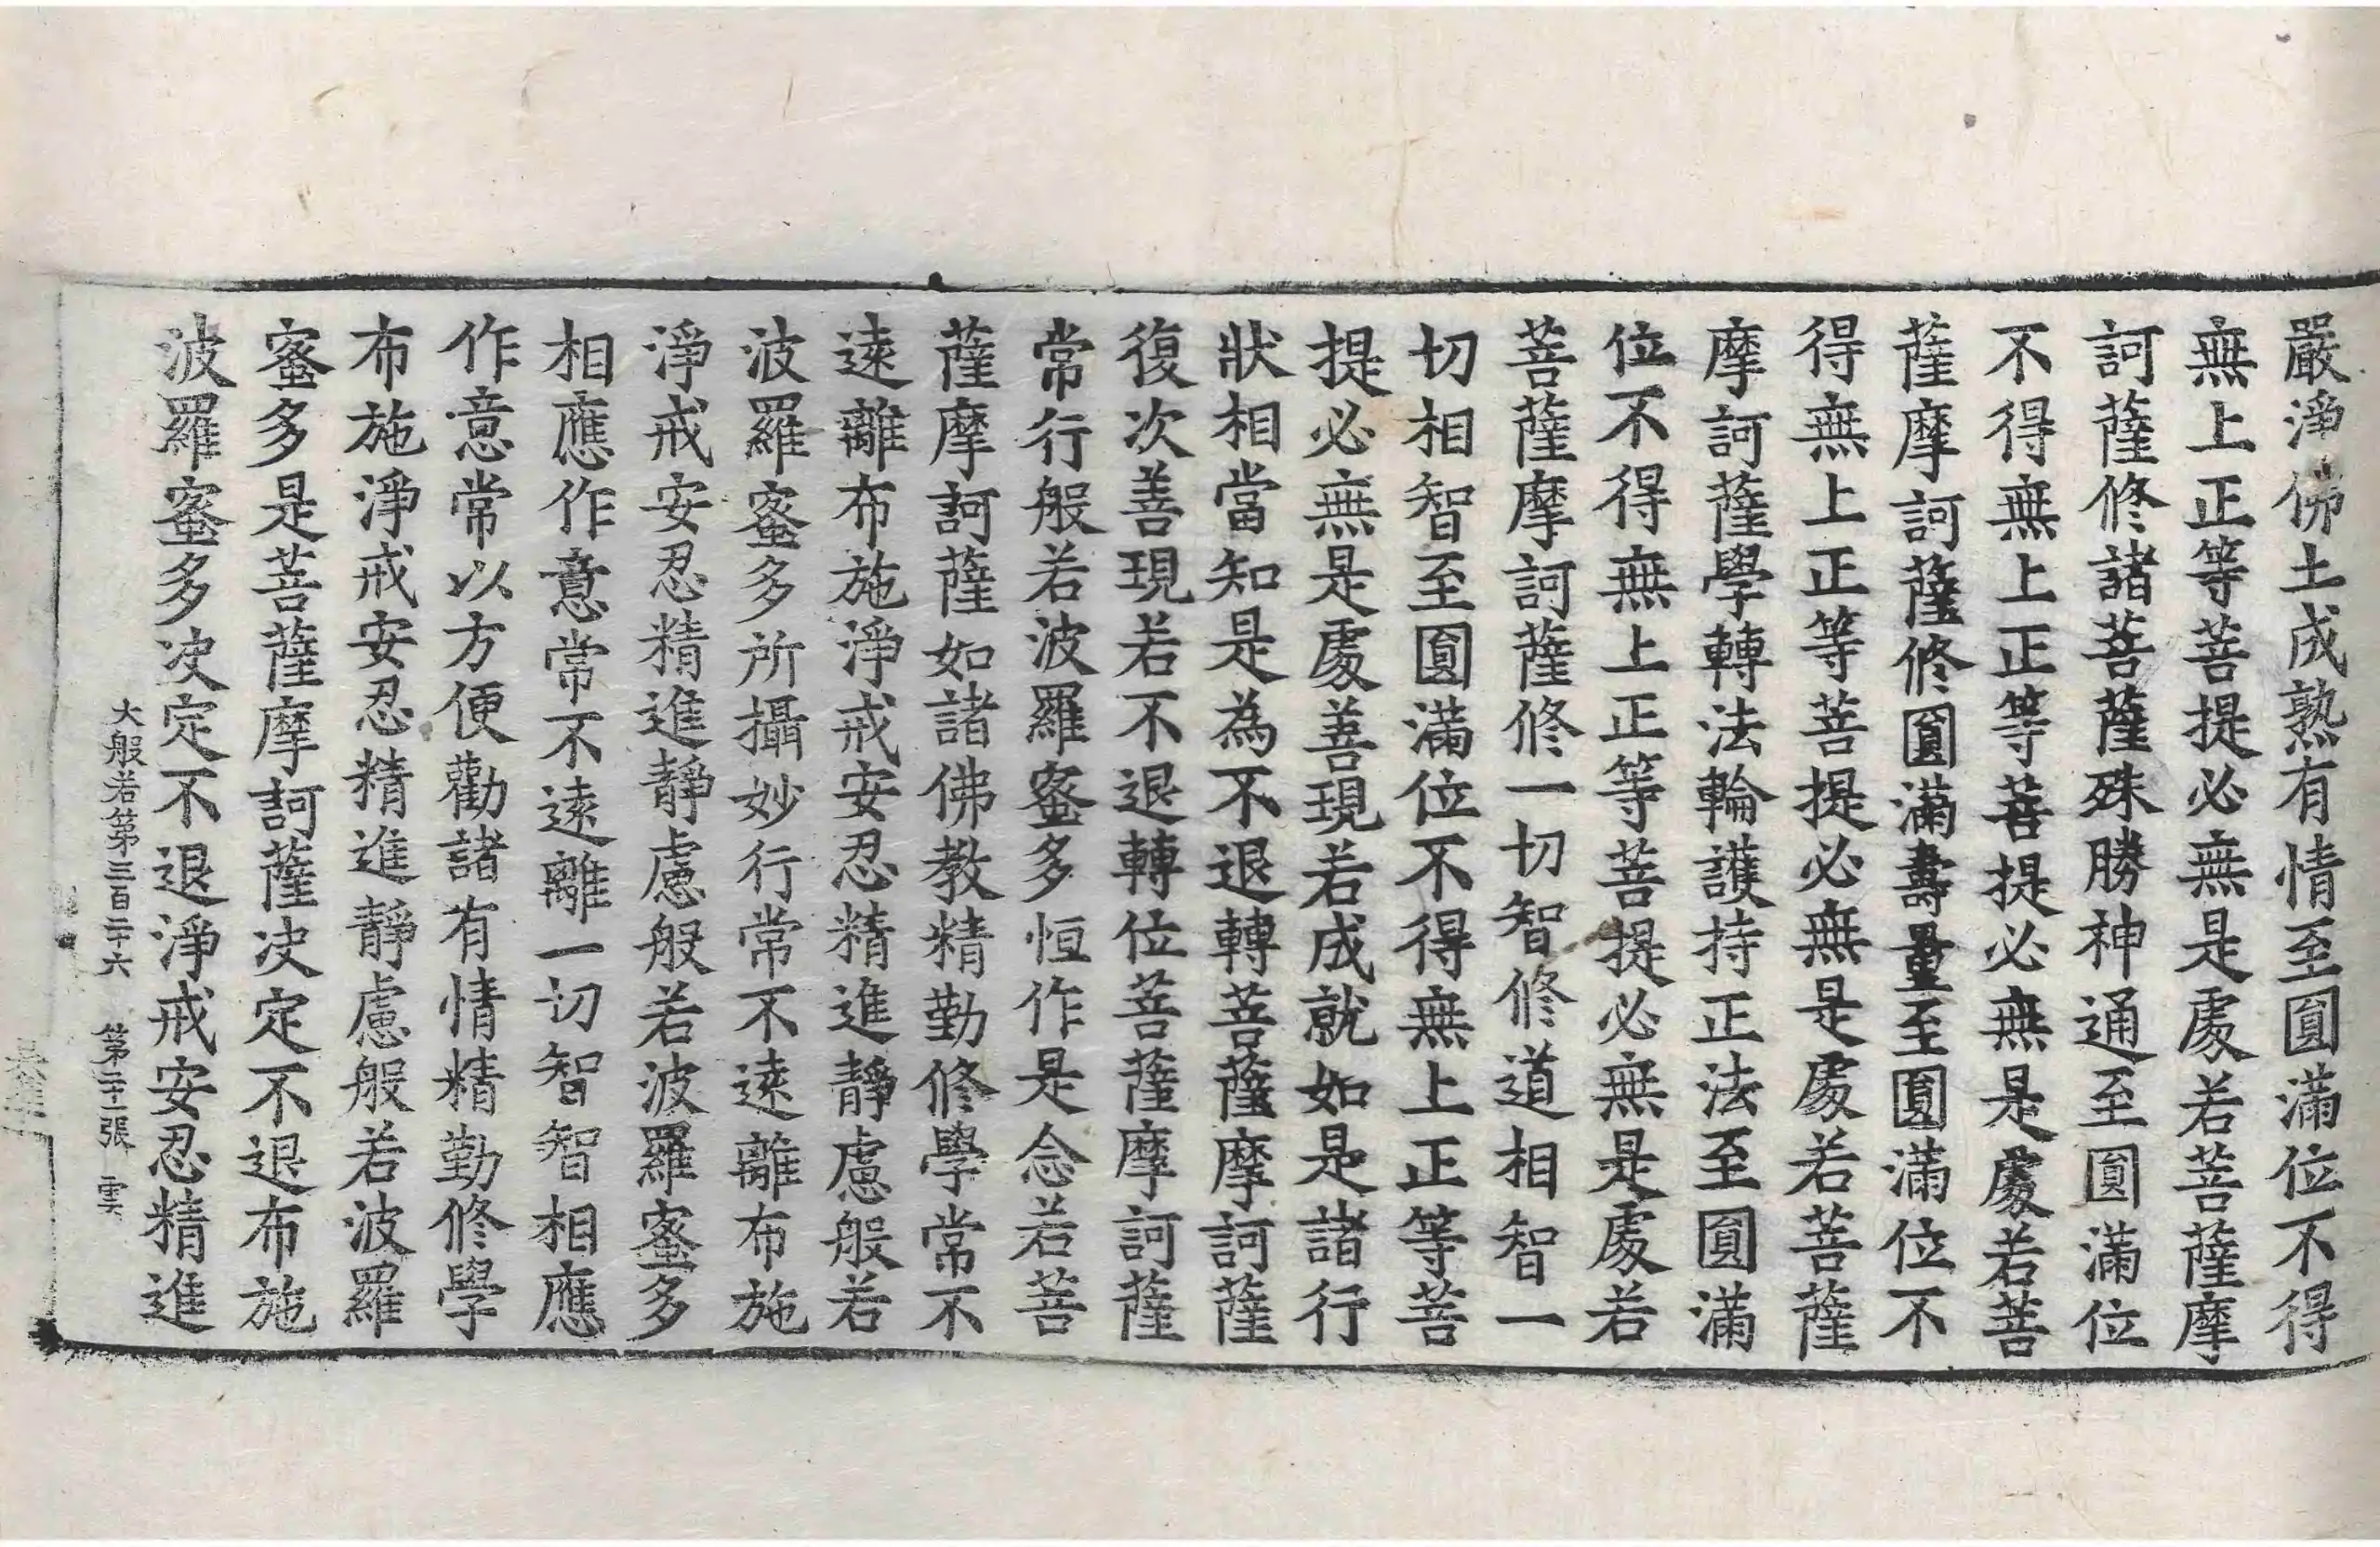 嚴淨佛土成熟有情至圓滿位不得
無上正等菩提必無是處若菩薩摩
訶薩修諸菩薩殊勝神通至圓滿位
不得無上正等菩提必無是處若菩
薩摩訶薩修圓滿壽量至圓滿位不
得無上正等菩提必無是處若菩薩
摩訶薩學轉法輪護持正法至圓滿
位不得無上正等菩提必無是處若
菩薩摩訶薩修一切智修道相智一
切相智至圓滿位不得無上正等菩
提必無是處善現若成就如是諸行
狀相當知是為不退轉菩薩摩訶薩
復次善現若不退轉位菩薩摩訶薩
常行般若波羅蜜多恒作是念若菩
薩摩訶薩如諸佛教精勤修學常不
遠離布施淨戒安忍精進靜慮般若
波羅蜜多所攝妙行常不遠離布施
淨戒安忍精進靜慮般若波羅蜜多
相應作意常不遠離一切智智相應
作意常以方便勸諸有情精勤修學
布施淨戒安忍精進靜慮般若波羅
蜜多是菩薩摩訶薩决定不退布施
波羅蜜多决定不退淨戒安忍精進
大般若第三百二十六 第二十一張 雲